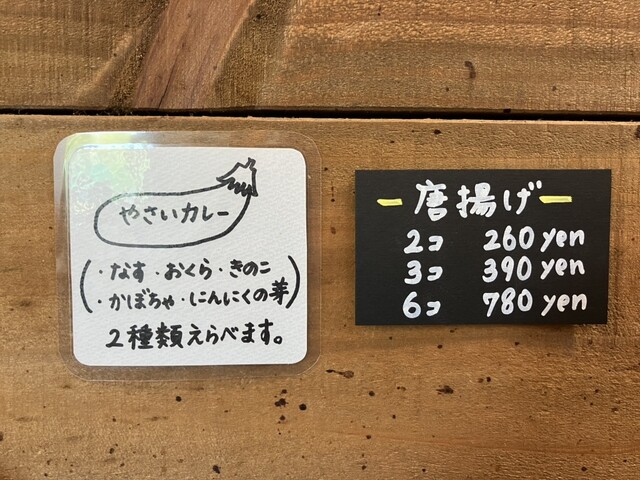 やさいカレー
(・なす・おくら・きのこ
・かぼちゃ・にんにくの芽)
2種類えらべます。
唐揚げ
2コ 260yen
3コ 390yen
6コ 780yen